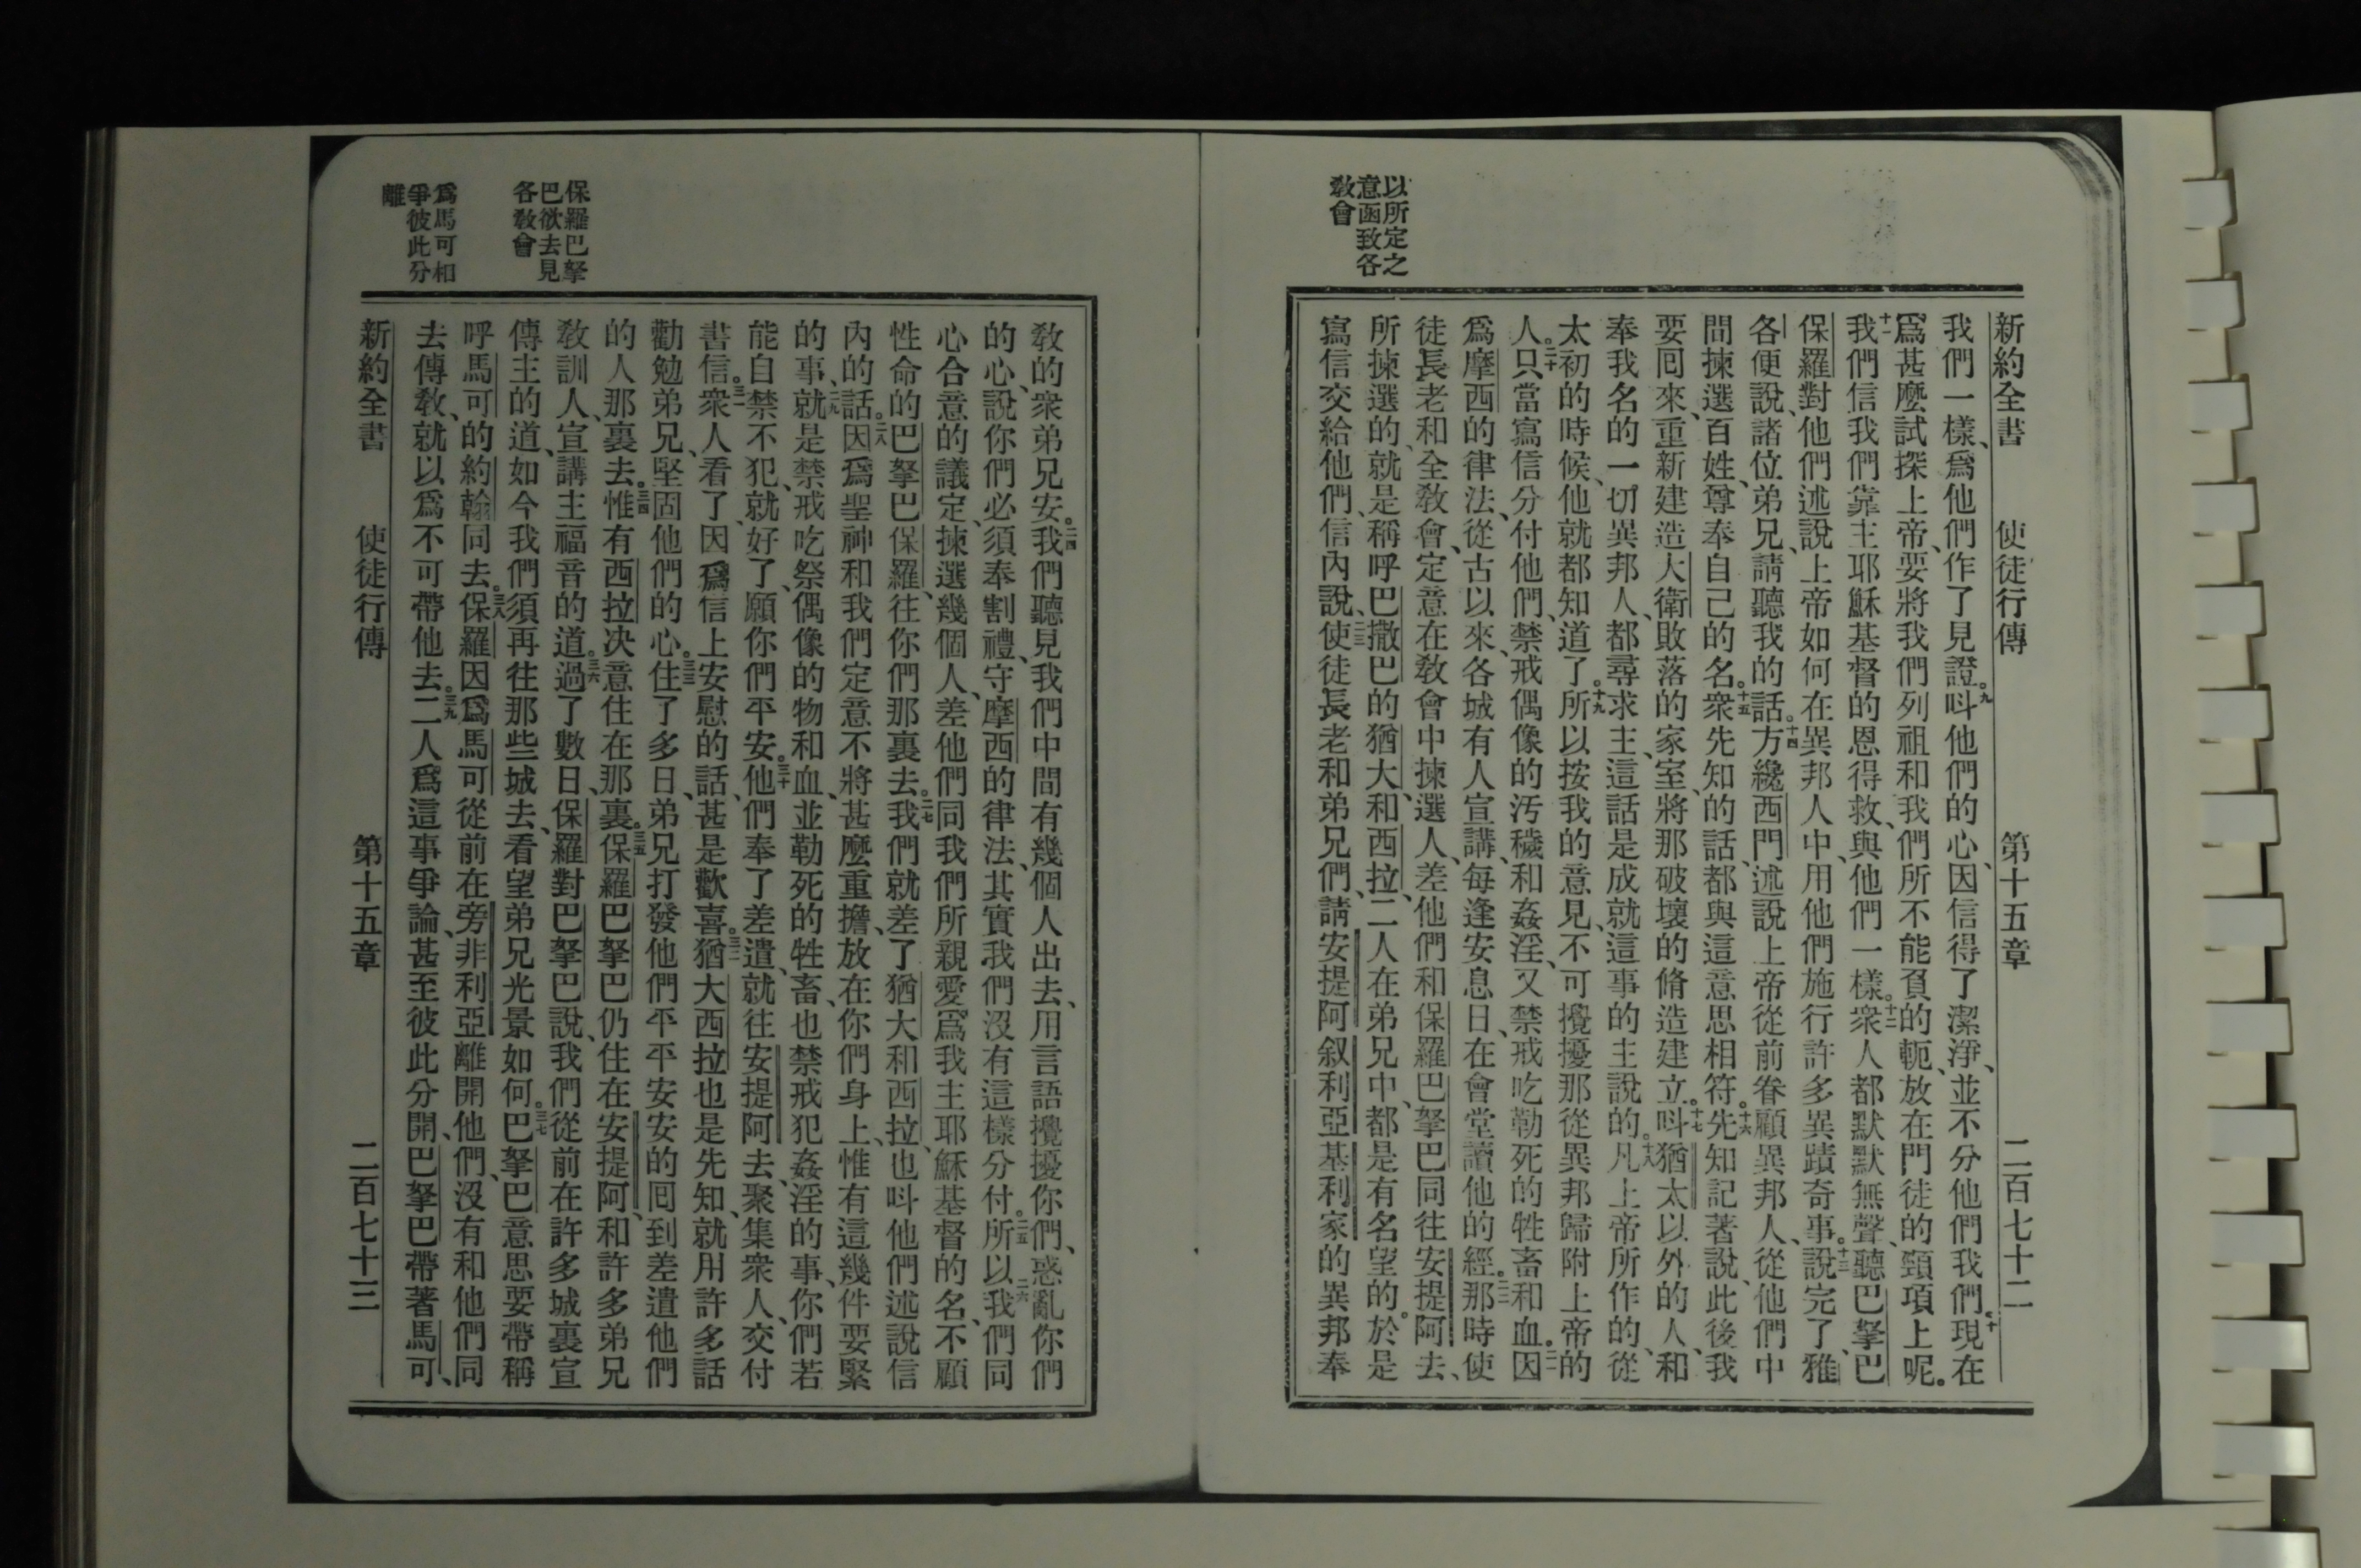 以所定之
意函致各
教會
新約全書 使徒行傳 第十五章 二百七十二
我們一樣、爲他們作了見證。九呌他們的心、因信得了潔淨、並不分他們我們。十現在
爲甚麼試探上帝、要將我們列祖和我們所不能負的軛、放在門徒的頸項上呢。
十一我們信我們靠主耶穌基督的恩得救、與他們一樣。十二衆人都默默無聲、聽巴拏巴
保羅對他們述說、上帝如何在異邦人中、用他們施行許多異蹟奇事。十三說完了、雅
各便說、諸位弟兄、請聽我的話。十四方纔西門述說上帝從前眷顧異邦人、從他們中
間揀選百姓、尊奉自己的名。十五衆先知的話、都與這意思相符。十六先知記著說、此後我
要囘來、重新建造大衛敗落的家室、將那破壞的脩造建立。十七呌猶太以外的人、和
奉我名的一切異邦人、都尋求主、這話是成就這事的主說的。十八凡上帝所作的、從
太初的時候、他就都知道了。十九所以按我的意見、不可攪擾那從異邦歸附上帝的
人。二十只當寫信分付他們、禁戒偶像的汚穢和姦淫、又禁戒吃勒死的牲畜和血。二一因
爲摩西的律法、從古以來、各城有人宣講、每逢安息日、在會堂讀他的經。二二那時使
徒長老和全教會、定意在教會中揀選人、差他們和保羅巴拏巴同往安提阿去、
所揀選的、就是稱呼巴撒巴的猶大、和西拉、二人在弟兄中、都是有名望的。於是
寫信交給他們、信內說、二三使徒長老和弟兄們、請安提阿叙利亞基利家的異邦奉
教的衆弟兄安。二四我們聽見我們中間有幾個人出去、用言語攪擾你們、惑亂你們
的心、說你們必須奉割禮、守摩西的律法、其實我們沒有這樣分付。二五所以二六我們同
心合意的議定、揀選幾個人、差他們同我們所親愛、爲我主耶穌基督的名、不顧
性命的巴拏巴保羅、往你們那裏去。二七我們就差了猶大和西拉、也呌他們述說信
內的話。二八因爲聖神和我們定意不將甚麼重擔、放在你們身上、惟有這幾件要緊
的事、二九就是禁戒吃祭偶像的物和血、並勒死的牲畜、也禁戒犯姦淫的事、你們若
能自禁不犯、就好了、願你們平安。三十他們奉了差遣、就往安提阿去、聚集衆人、交付
書信。三一衆人看了、因爲信上安慰的話、甚是歡喜。三二猶大西拉也是先知、就用許多話
勸勉弟兄、堅固他們的心。三三住了多日、弟兄打發他們平平安安的囘到差遣他們
的人那裏去。三四惟有西拉决意住在那裏。三五保羅巴拏巴仍住在安提阿、和許多弟兄
教訓人、宣講主福音的道。三六過了數日、保羅對巴拏巴說、我們從前在許多城裏宣
傳主的道、如今我們須再往那些城去、看望弟兄光景如何。三七巴拏巴意思要帶稱
呼馬可的約翰同去。三八保羅因爲馬可從前在旁非利亞離開他們、沒有和他們同
去傳教、就以爲不可帶他去。三九二人爲這事爭論、甚至彼此分開、巴拏巴帶著馬可、
新約全書 使徒行傳 第十五章 二百七十三
保羅巴拏
巴欲去見
各教會
爲馬可相
爭彼此分
離